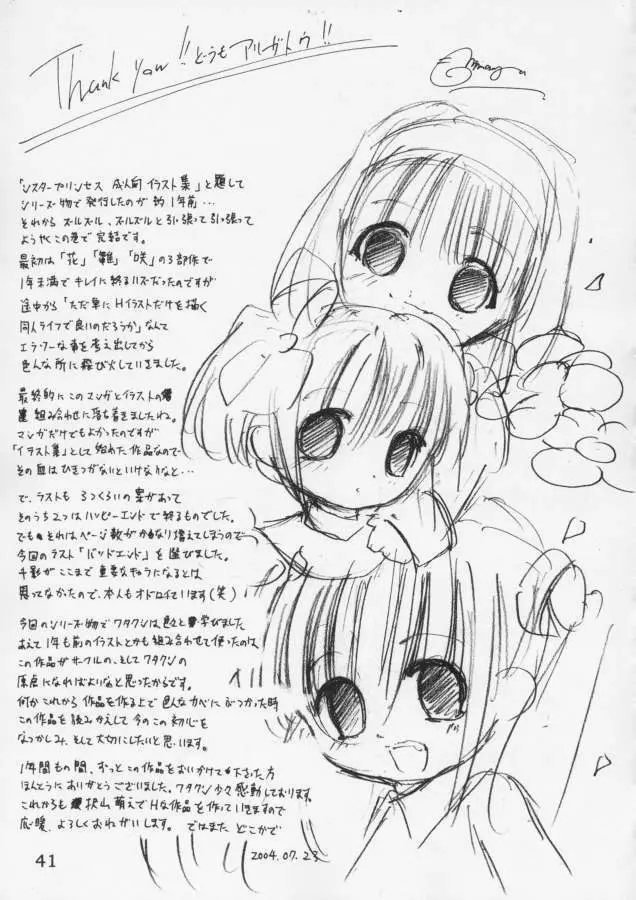 Thank you!! どうもアリガトウ!!
「シスタープリンセス 成人向 イラスト集」と題して
シリーズ物で発行したのが約1年前…
それからズルズル、ズルズルと引っ張って引っ張って
ようやくこの巻で完結です。
最初は「花」「雛」「咲」の3部作で
1年未満でキレイに終るハズだったのですが
途中から「ただ単にHイラストだけを描く
同人ライフで良いのだろうか」なんて
エラソーな事を考え出してから
色んな所に飛び火していきました。
最終的にこのマンガとイラストの
組み合わせに落ち着きましたね。
マンガだけでもよかったのですが
「イラスト集」として始めた作品なので
その血はひきつがないといけなりなと…
で、ラストも3つくらいの案があって
そのうち2つはハッピーエンドで終るものでした。
でもそれはページ数がかなり増えてしまうので
今回のラスト「バッドエンド」を選びました。
千影がここまで重要なキャラになるとは
思ってなかたので、本人もオドロイています(笑)
今回のシリーズ物でワタクシは色々と学びました
あえて1年も前のイラストとかも組み合わせて使ったのは
この作品がサークルの、そしてワタクシの
原点になればよいなと思ったからです。
何かこれから作品を作る上で色んなカベにぶつかった時
この作品を読みかえして今のこの初心を
なつかしみ、そして大切にしたいと思います。
1年間もの間、ずっとこの作品をおいかけて下さった方
ほんとうにありがとうございました。ワタクシ少々感動しております。
これからも沢山萌えでHな作品を作っていきますので
応援、よろしくおねがいします。ではまたどこかで
2004.07.23
41